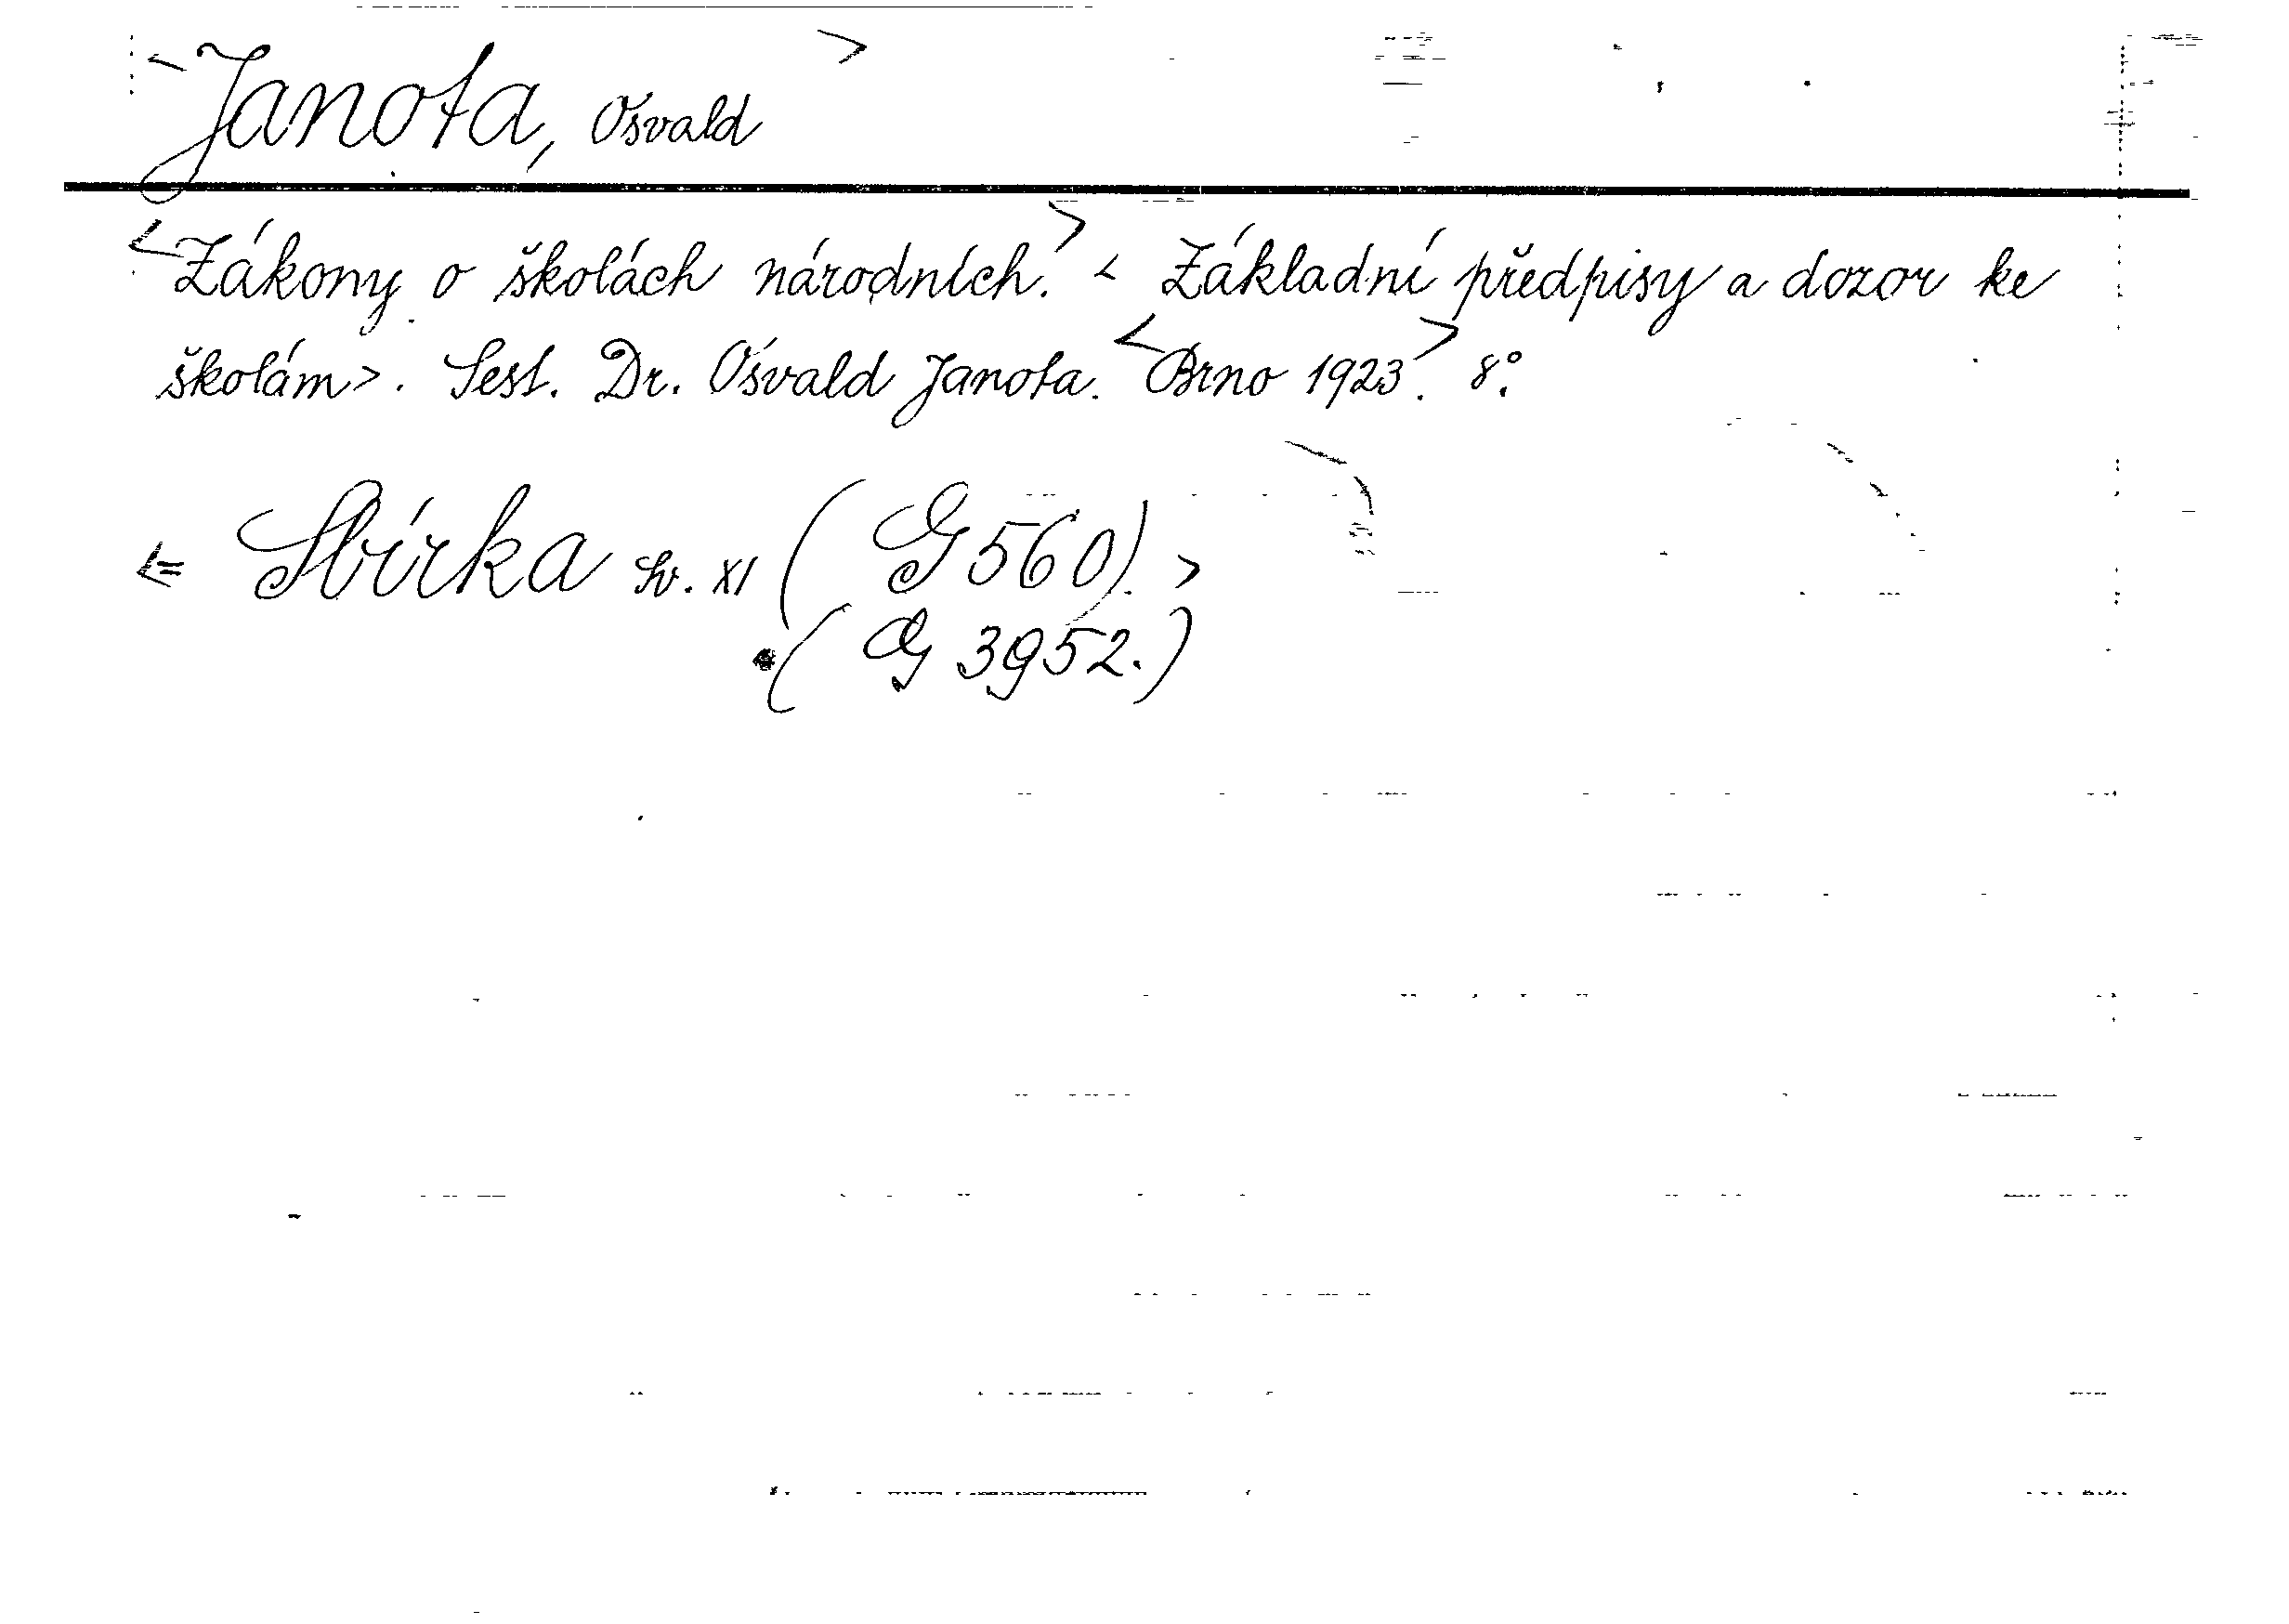 <Janota, Osvald>
<Zákony o školách národních.> < Základní předpisy a dozor ke
školám>. Sest. Dr. Osvald Janota. <Brno 1923>. 8°.
<= Sbírka sv. XI (G 560).>
(G 3952.)